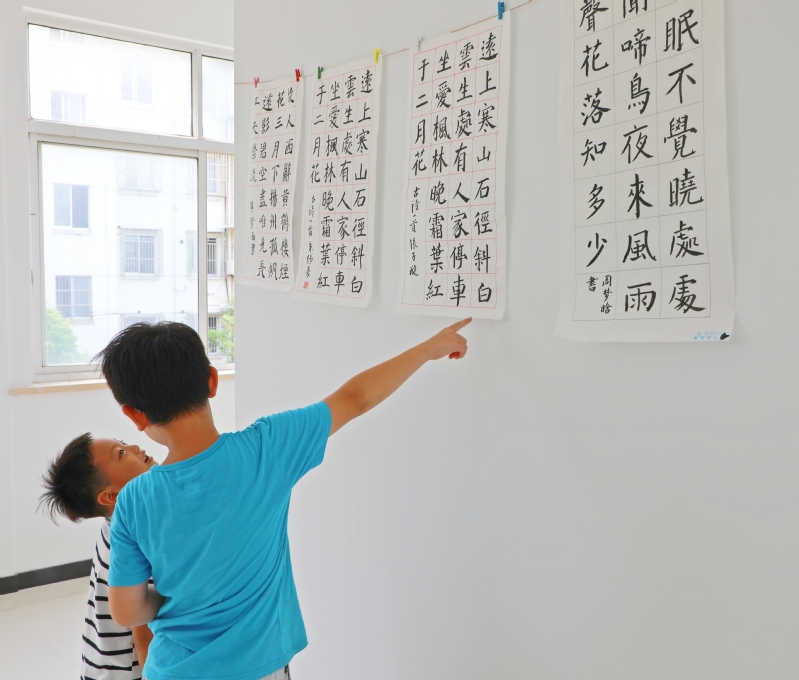 眠不覺曉處處
聞啼鳥夜來風雨
聲花落知多少
周梦晗
書
遠上寒山石徑斜白
雲生處有人家停車
坐愛楓林晚霜葉紅
于二月花
古诗一首
遠上寒山石徑斜白
雲生處有人家停車
坐愛楓林晚霜葉紅
于二月花
古诗一首
人西辭黄鶴樓煙
花三月下揚州孤帆
遠影碧空盡唯見長
天際流